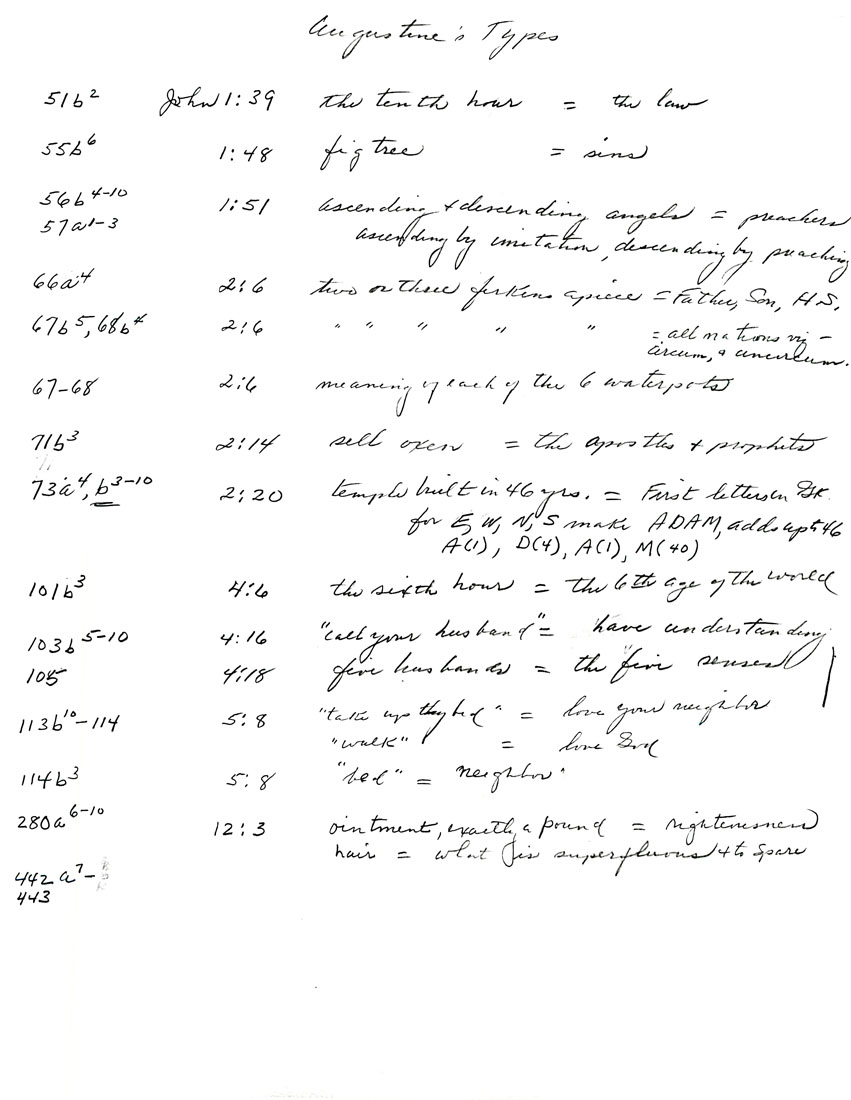 Augustine's Types
51b2 John 1:39 the tenth hour = the law
55b6 1:48 fig tree = sins
56b4-10 1:51 ascending & descending angels = preachers
57a1-3 ascending by imitation, descending by preaching
66a4 2:6 two or three firkins apiece = Father, Son, H.S.
67b5, 68b4 2:6 " " " " " = all nations viz -
circum, & uncircum.
67-68 2:6 meaning of each of the 6 waterpots
71b3 2:14 sell oxen = the apostles & prophets
73a4, b3-10 2:20 temple built in 46 yrs. = First letters in Gk.
for E, W, N, S make ADAM, adds up to 46
A(1), D(4), A(1), M(40)
101b3 4:6 the sixth hour = the 6th age of the world
103b5-10 4:16 "call your husband" = have understanding
105 4:18 five husbands = the five senses
113b10-114 5:8 "take up thy bed" = love your neighbor
"walk" = love God
114b3 5:8 "bed" = neighbor
280a6-10 12:3 ointment, exactly a pound = righteousness
hair = what is superfluous & to spare
442a7-
443